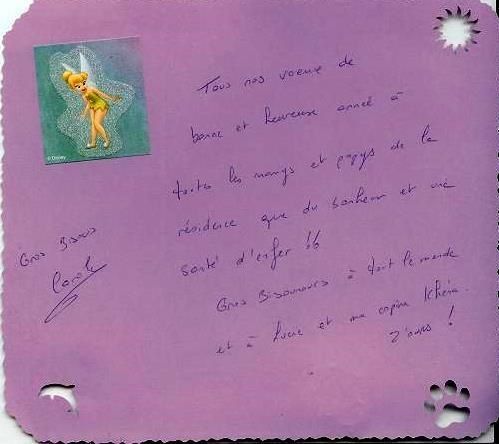 © Disney
Tous nos voeux de
bonne et heureuse anneé à
toutes les mamys et papys de la
résidence que du bonheur et une
santé d'enfer !!
Gros Bisounours à tout le monde
et à Lucie et ma copine Khéra.
J'aurs !
Gros Bisous
Carole